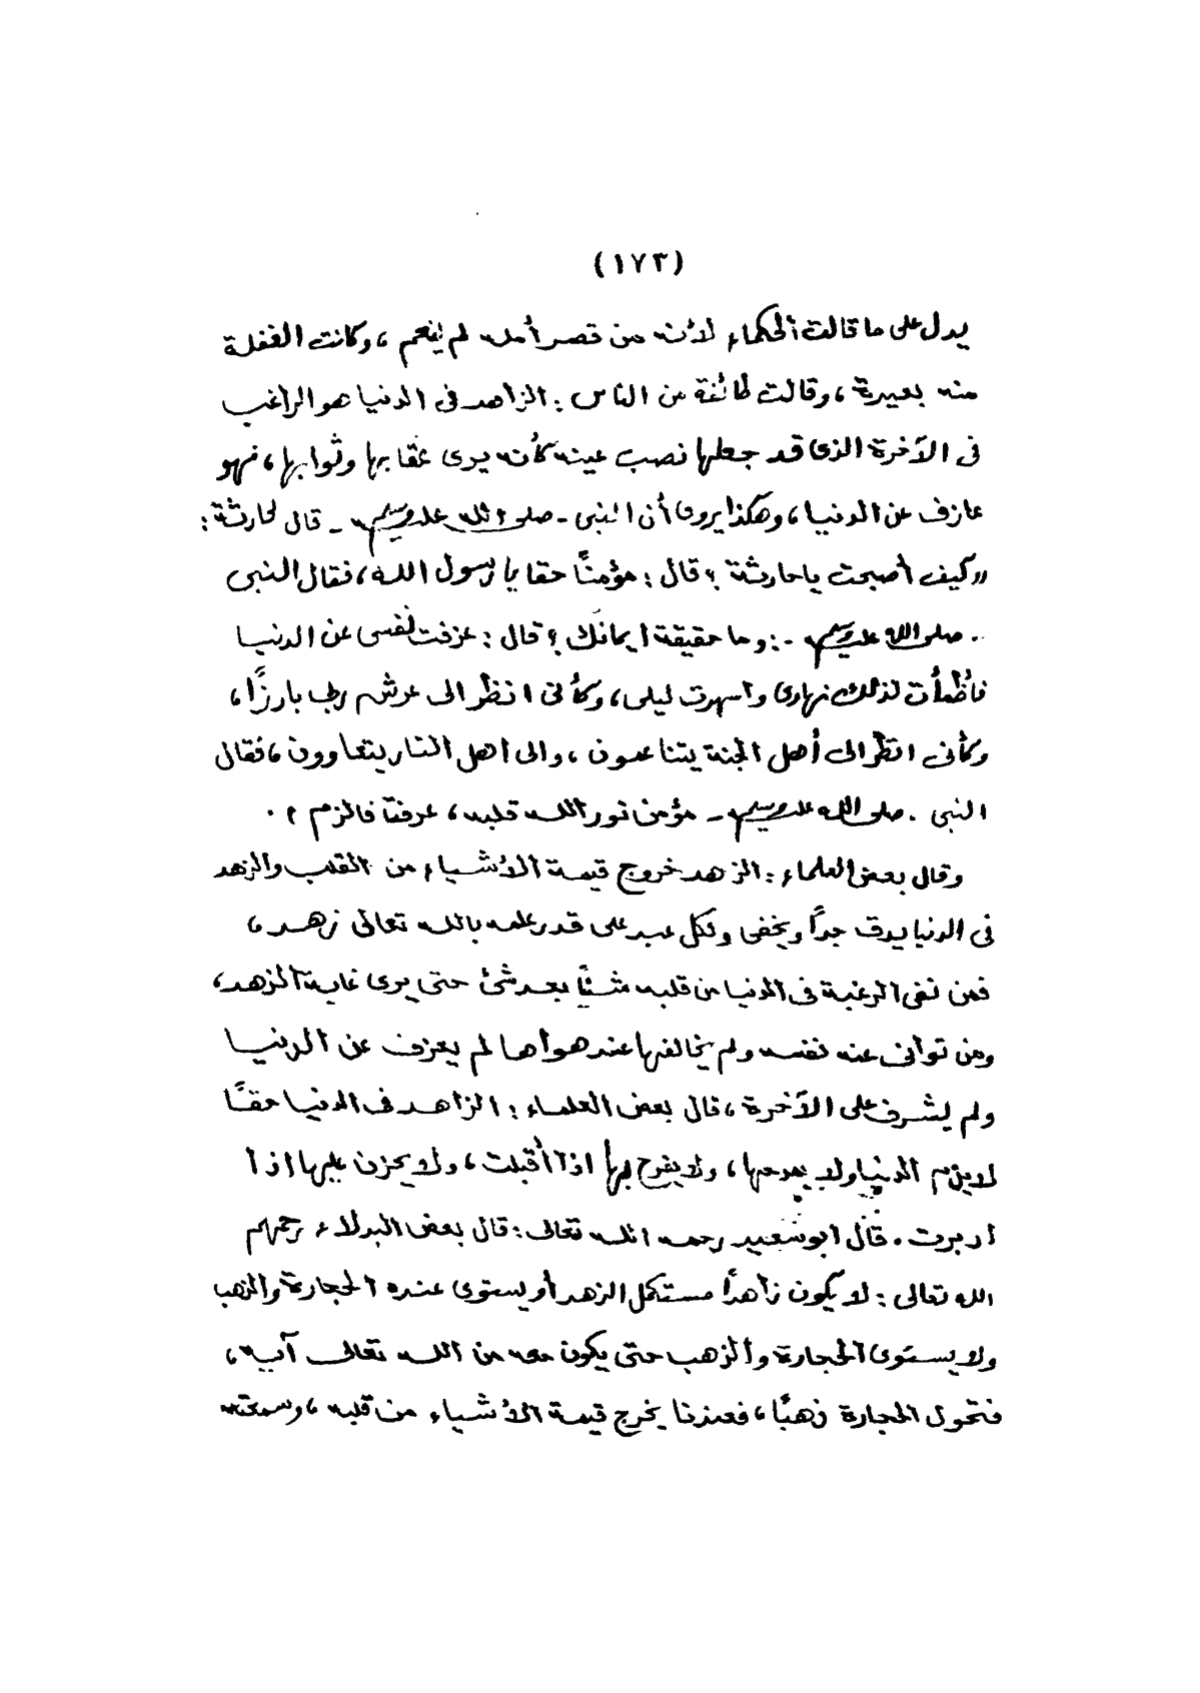 (١٧٣)
يدل على ما قالت الحكماء لأنه من قصر أمله لم ينعم ، وكانت الغفلة
منه بعيدة ، وقالت طائفة من الناس : الزاهد فى الدنيا هو الراغب
فى الآخرة الذى قد جعلها نصب عينه كأنه يرى عقابها وثوابها ، فهو
عازف عن الدنيا ، وهكذا يروى أن النبى - صلى الله عليه وسلم - قال لحارثة :
"كيف أصبحت يا حارثة ؟ قال : مؤمنًا حقا يا رسول الله ، فقال النبى
- صلى الله عليه وسلم - : وما حقيقة ايمانك ؟ قال : عزفت نفسى عن الدنيا
فأظمأت لذلك نهارى واسهرت ليلى ، وكأنى انظر الى عرش ربى بارزًا ،
وكأنى انظر الى أهل الجنة يتناعمون ، والى اهل النار يتعاوون ، فقال
النبى - صلى الله عليه وسلم - مؤمن نور الله قلبه ، عرفت فالزم " .
وقال بعض العلماء : الزهد خروج قيمة الأشياء من القلب والزهد
فى الدنيا يدق جدًا ويخفى ولكل عبد على قدر علمه بالله تعالى زهد ،
فمن نفى الرغبة فى الدنيا من قلبه شئًا بعد شئ حتى يرى غاية الزهد ،
ومن توانى عنه نفسه ولم يخالفها عند هواها لم يعزف عن الدنيا
ولم يشرف على الآخرة ، قال بعض العلماء : الزاهد فى الدنيا حقًا
لا يذم الدنيا ولا يمدحها ، ولا يفرح بها اذا أقبلت ، ولا يحزن عليها اذا
ادبرت . قال ابو سعيد رحمه الله تعالى : قال بعض البدلاء رحمهم
الله تعالى : لا يكون زاهدًا مستكمل الزهد أو يستوى عنده الحجارة والذهب
ولا يستوى الحجارة والذهب حتى يكون معه من الله تعالى آية ،
فتحول الحجارة ذهبًا ، فعندنا يخرج قيمة الأشياء من قلبه ، وسمعته